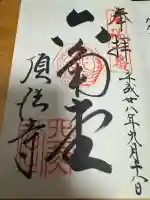 奉拝
平成廿八年九月十八日
六角堂
頂法寺